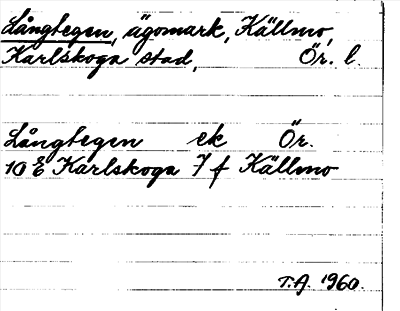 Långtegen, ägomark, Källmo,
Karlskoga stad, Ör. l.
Långtegen ek Ör.
10 E Karlskoga 7 f Källmo
T.A. 1960.